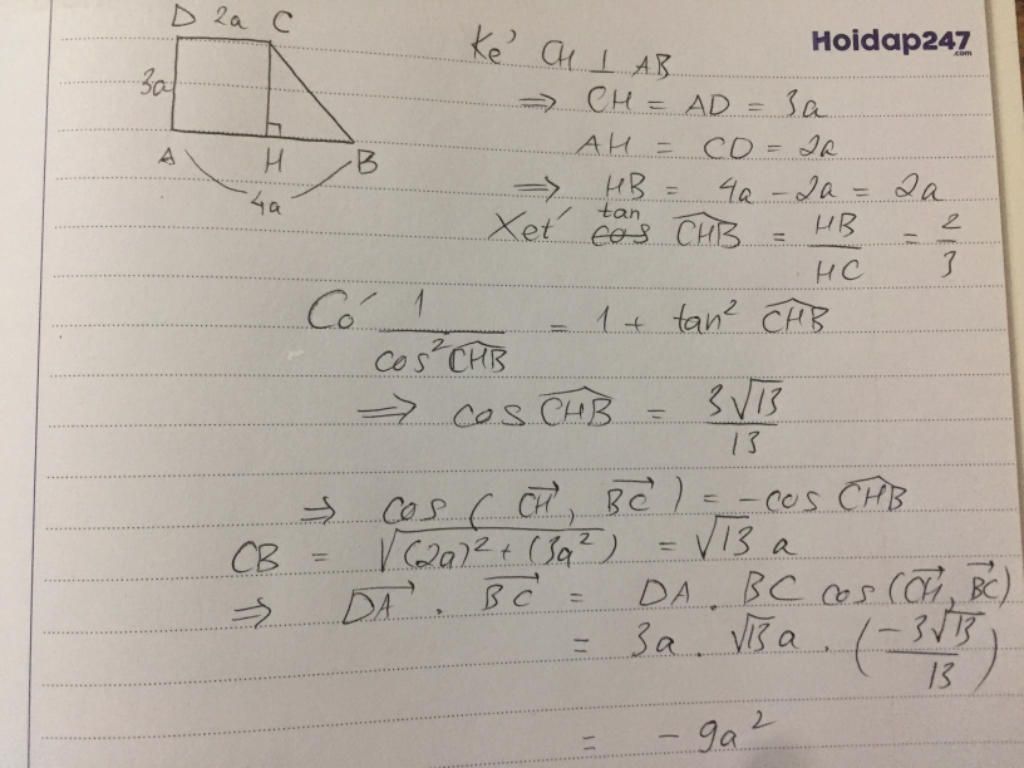 D 2a C
3a
A H B
4a
Hoidap247
.com
Kẻ CH ⊥ AB
⇒ CH = AD = 3a
AH = CD = 2a
⇒ HB = 4a - 2a = 2a
tan
Xét cos CHB = HB/HC = 2/3
Có 1/cos² CHB = 1 + tan² CHB
⇒ cos CHB = 3√13/13
⇒ cos (CH, BC) = -cos CHB
CB = √((2a)² + (3a²)) = √13 a
⇒ DA . BC = DA . BC cos (CH, BC)
= 3a . √13 a . (-3√13/13)
= - 9a²